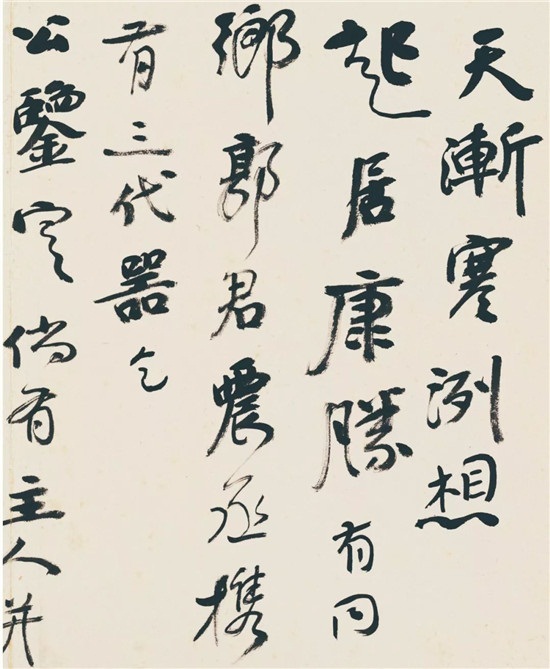 天漸寒洌想
起居康勝有同
鄉郭君震丞攜
有三代器乞
公鑒定倘有主人并